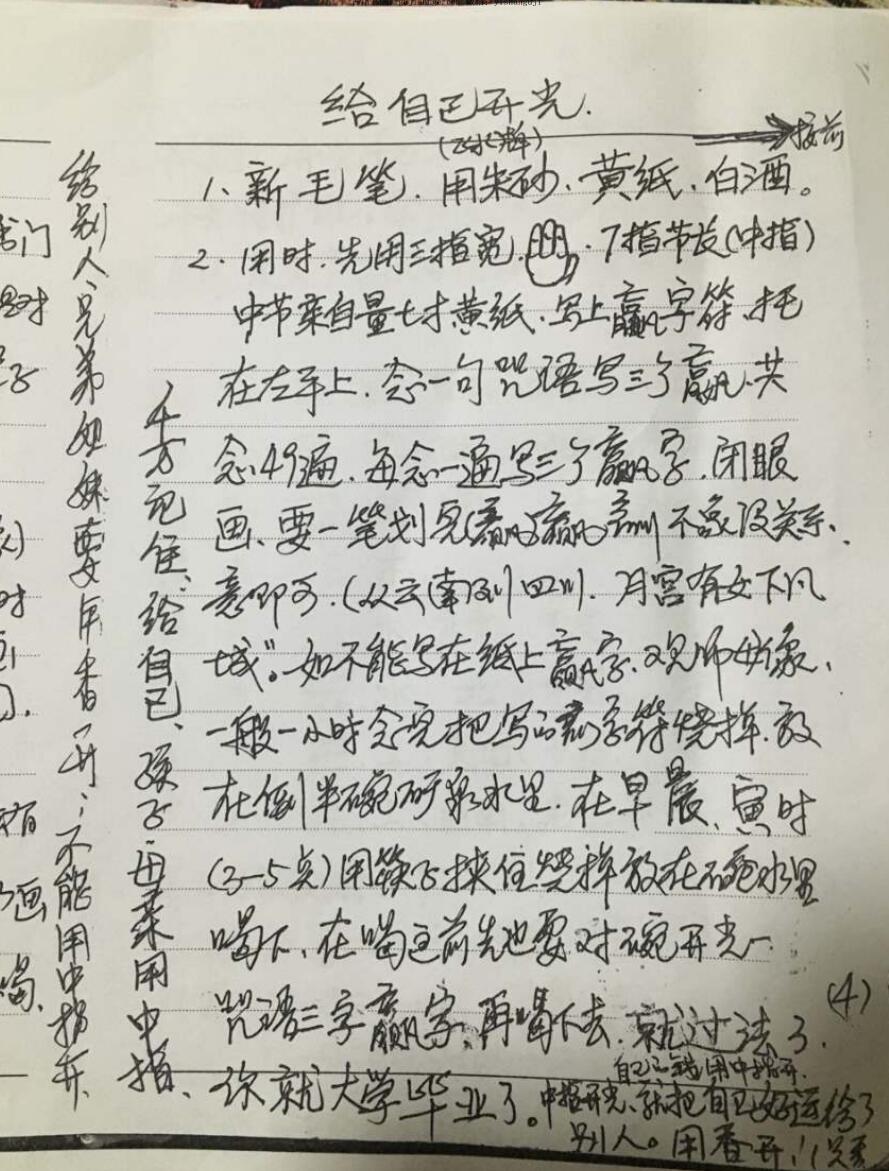 给自己开光.
接前
1、新毛笔、用朱砂、黄纸、白酒。
2、用时、先用三指宽、7指节长(中指)
中节亲自量七寸黄纸、写上赢字符、托
在左手上、念一句咒语写三个赢、共
念49遍、每念一遍写三个赢字、闭眼
画、要一笔划完(赢)赢 不象没关系、
意即可、(从云南到四川、月宫有女下凡
城”。如不能写在纸上赢字、观师好象、
一般一小时念完把写的赢字符烧掉、放
在倒半碗矿泉水里、在早晨、寅时
(3-5点)用筷子挟住烧掉放在碗水里
喝下、在喝之前先也要对碗开光一
咒语三字赢字、再喝下去、就过法了.
你就大学毕业了。
自己的钱用中指开.
中指开光、就把自己好运给了
别人。用香开!
(4)
千万记住、给自己、孩子、母亲用中指、
给别人、兄弟姐妹要用香开、不能用中指开、